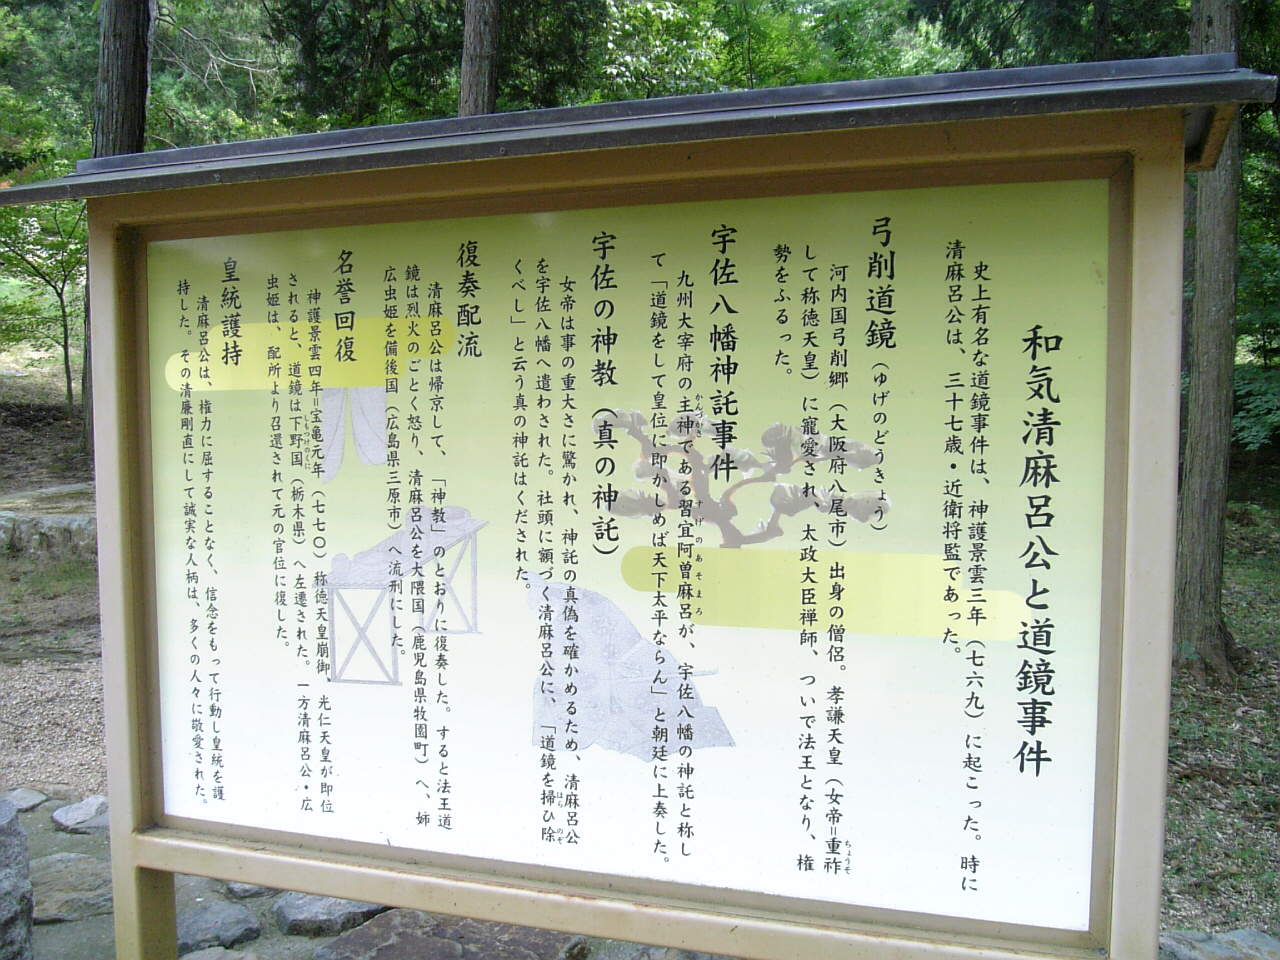 和気清麻呂公と道鏡事件
史上有名な道鏡事件は、神護景雲三年（七六九）に起こった。時に
清麻呂公は、三十七歳・近衛将監であった。
弓削道鏡（ゆげのどうきょう）
河内国弓削郷（大阪府八尾市）出身の僧侶。孝謙天皇（女帝＝重祚ちょうそ
して称徳天皇）に寵愛され、太政大臣禅師、ついで法王となり、権
勢をふるった。
宇佐八幡神託事件
九州大宰府の主神かんづかさである習宜阿曽麻呂すげのあそまろが、宇佐八幡の神託と称し
て「道鏡をして皇位に即かしめば天下太平ならん」と朝廷に上奏した。
宇佐の神教（真の神託）
女帝は事の重大さに驚かれ、神託の真偽を確かめるため、清麻呂公
を宇佐八幡へ遣わされた。社頭に額づく清麻呂公に、「道鏡を掃はらひ除のぞ
くべし」と云う真の神託はくだされた。
復奏配流
清麻呂公は帰京して、「神教」のとおりに復奏した。すると法王道
鏡は烈火のごとく怒り、清麻呂公を大隈国（鹿児島県牧園町）へ、姉
広虫姫を備後国（広島県三原市）へ流刑にした。
名誉回復
神護景雲四年＝宝亀元年（七七〇）称徳天皇崩御、光仁天皇が即位
されると、道鏡は下野国しもつけのくに（栃木県）へ左遷された。一方清麻呂公・広
虫姫は、配所より召還されて元の官位に復した。
皇統護持
清麻呂公は、権力に屈することなく、信念をもって行動し皇統を護
持した。その清廉剛直にして誠実な人柄は、多くの人々に敬愛された。